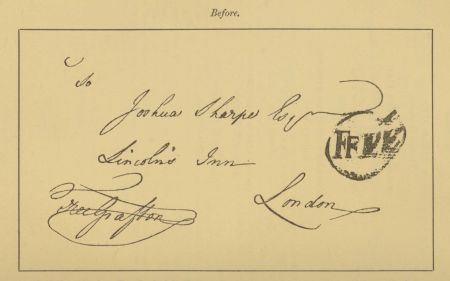 Before.
To
Joshua Sharpe Esqr
Lincoln's Inn
London
Free Grafton